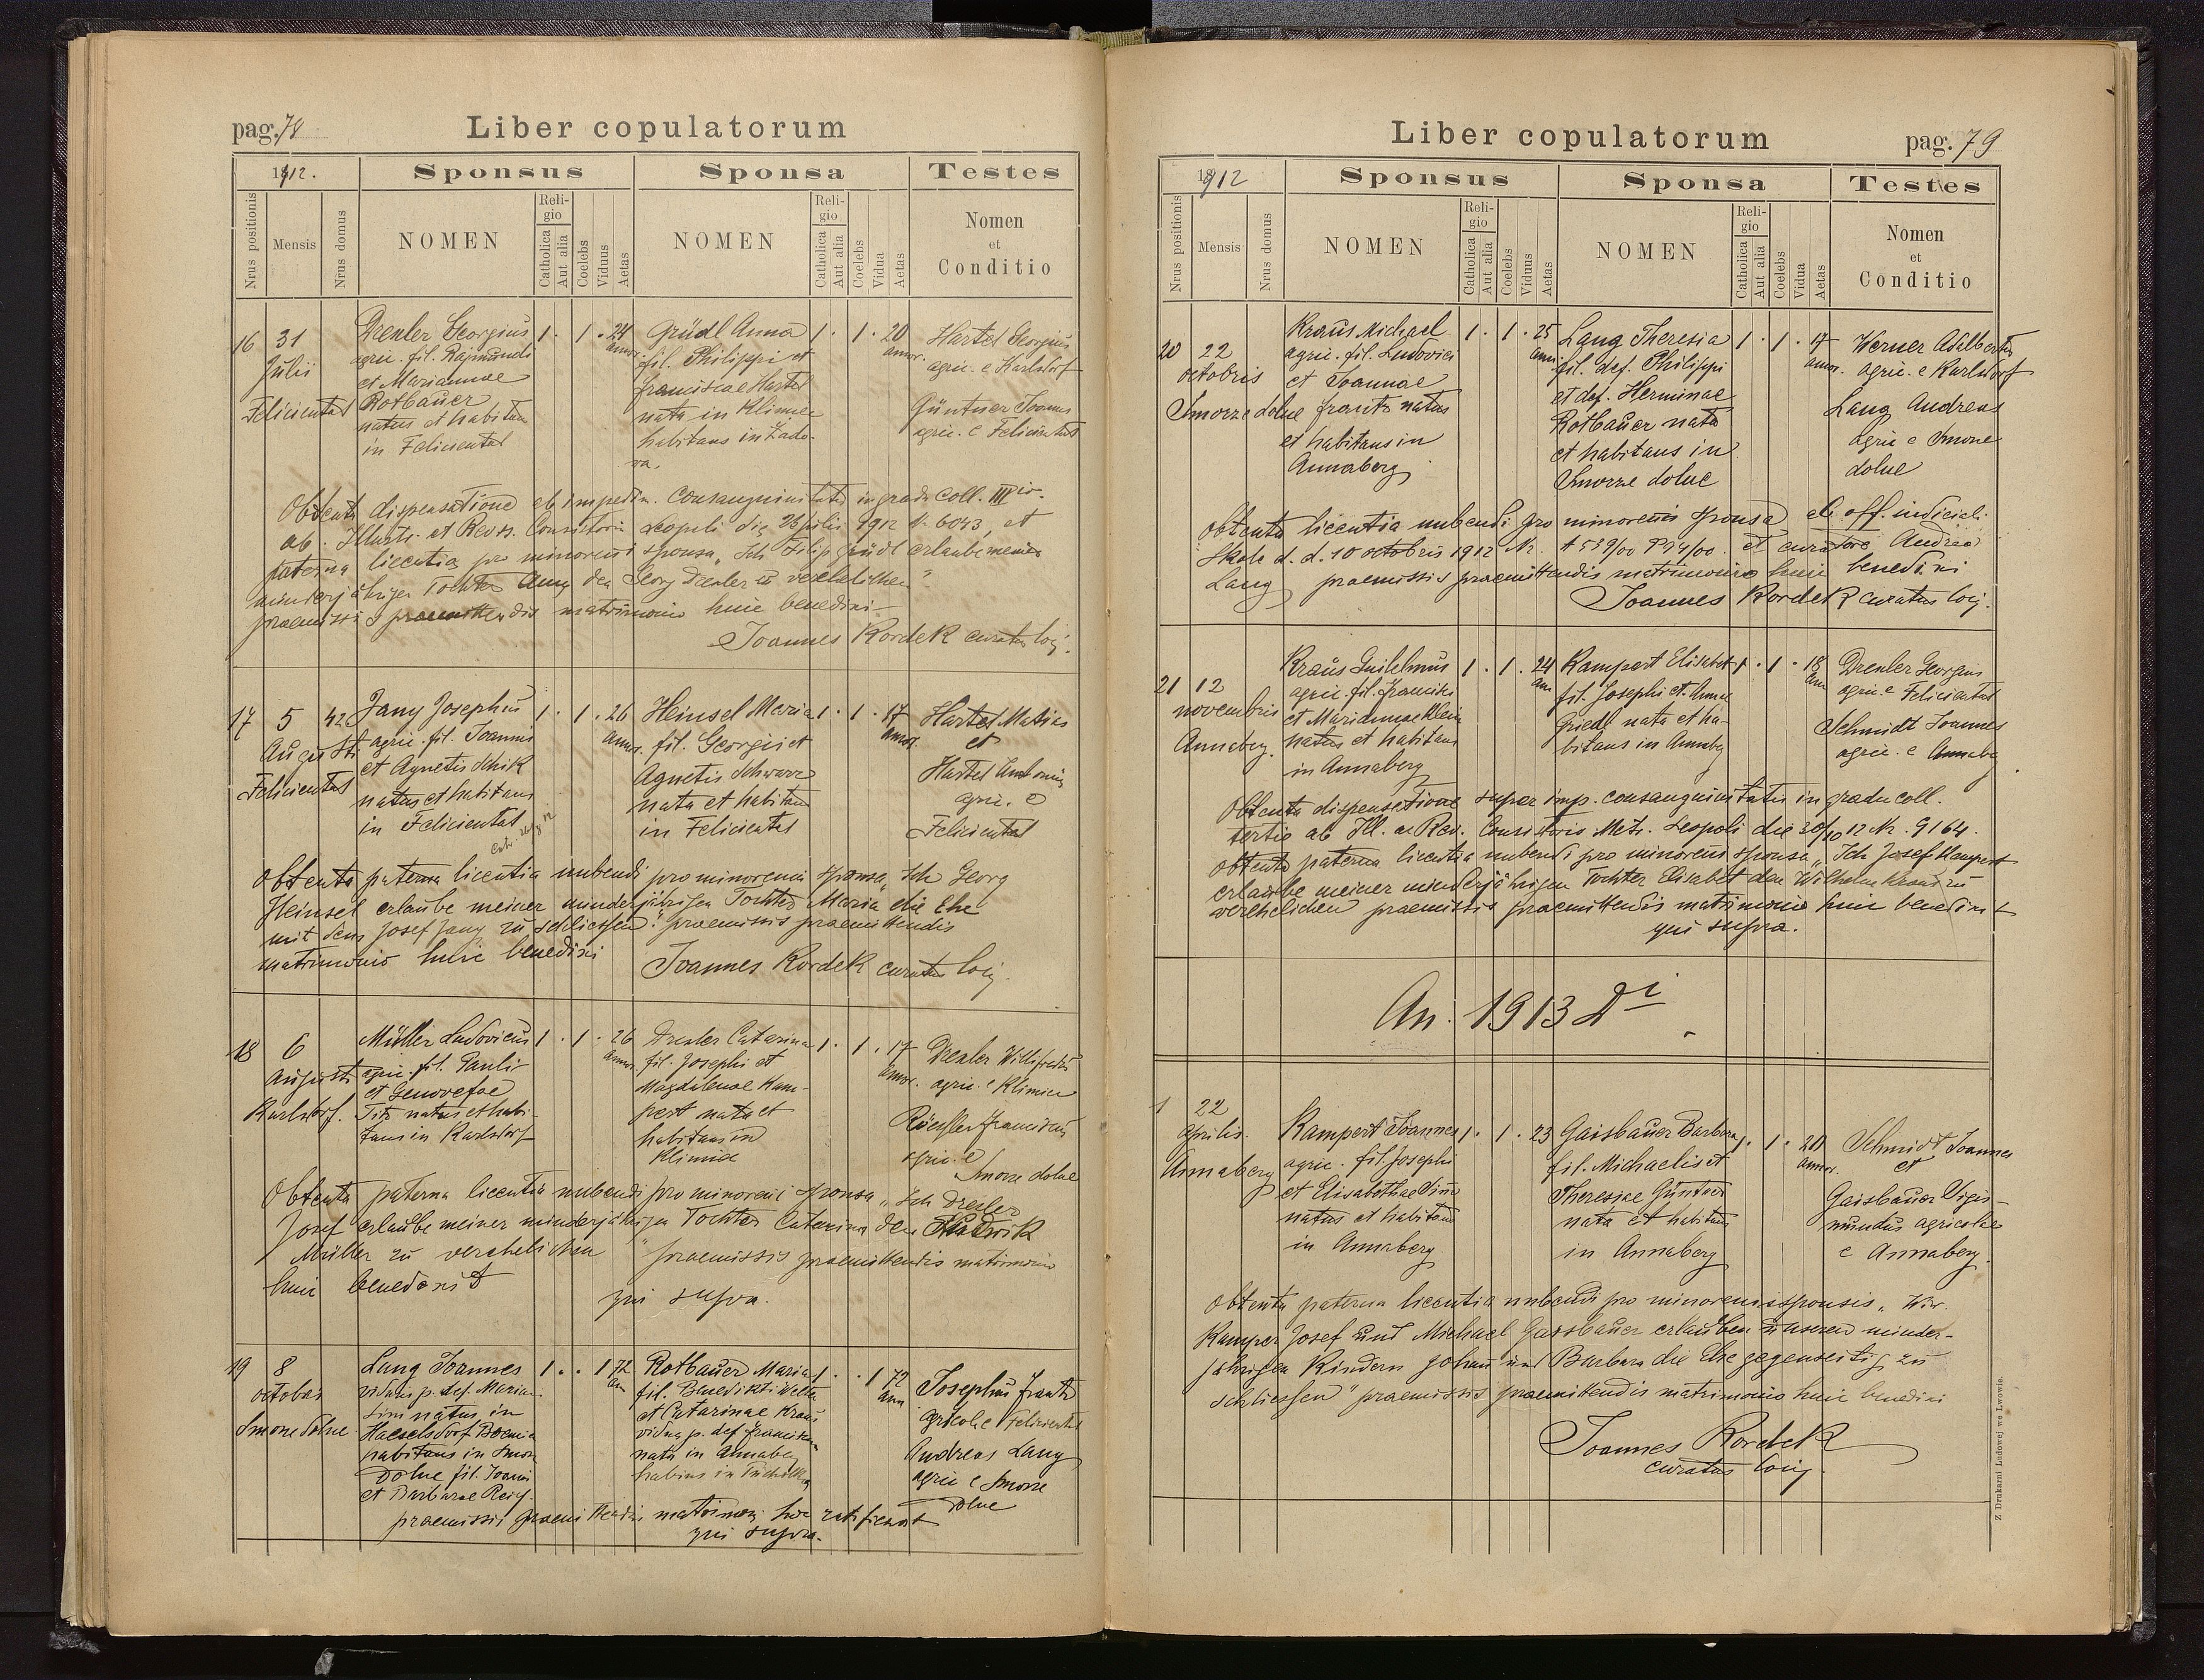 pag. 78
Liber copulatorum
1912.
Sponsus
Sponsa
Testes
Nrus positionis
Mensis
Nrus domus
NOMEN
Religio
Catholica
Aut alia
Coelebs
Viduus
Aetas
NOMEN
Religio
Catholica
Aut alia
Coelebs
Vidua
Aetas
Nomen
et
Conditio
16 31
Julii
Felicientat
Drexler Georgius
agric. fil. Rajmundi
et Mariannae
Rotbauer
natus et habitan
in Felicientat
1 . 1 . 24
annor.
Grüdl Anna
fil. Philippi et
Franciscae Hartel
nata in Klimiec
habitans in Zado-
ra.
1 . 1 . 20
annor.
Hartel Georgius
agric. e Karlsdorf
Güntner Joannes
agric. e Felicientat
Obtenta dispensatione ab impedim. consanguinitatis in gradu coll. III io.
ab. Illustr. et Revss. Consistorio Leopoli die 23 julii 1912 N. 6043, et
paterna licentia pro minorenni sponsa „Ich Filip Grüdl erlaube meiner
minderjähriger Tochter Anna den Georg Drexler zu verehelichen"
praemissis praemittendis matrimonio huic benedixi
Joannes Kordek curatus loci.
17 5 42
Augusti
Felicientat
Jany Josephus
agric. fil. Joannis
et Agnetis Schik
natus et habitans
in Felicientat
1 . 1 . 26
annor.
Heinsel Maria
fil. Georgii et
Agnetis Schwarz
nata et habitans
in Felicientat
1 . 1 . 17
annor.
Hartel Matias
et
Hartel Antonius
agric. e
Felicientat
Obtenta paterna licentia nubendi pro minorenni sponsa „Ich Georg
Heinsel erlaube meiner minderjährigen Tochter Maria die Ehe
mit dem Josef Jany zu schliessen." praemissis praemittendis
matrimonio huic benedixi
Joannes Kordek curatus loci.
18 6
Augusti
Karlsdorf.
Müller Ludovicus
agric. fil. Pauli
et Genovefae
Titz natus et habi-
tans in Karlsdorf
1 . 1 . 26
annor.
Drexler Catarina
fil. Josephi et
Magdalenae Kam-
pert nata et
habitans in
Klimiec
1 . 1 . 17
annor.
Drexler Willifredus
agric. e Klimiec
Franciscus
agric. e
Smorze dolne
Obtenta paterna licentia nubendi pro minorenni sponsa „Ich Drexler
Josef erlaube meiner minderjährigen Tochter Catarina den Ludwik
Müller zu verehelichen" praemissis praemittendis matrimonio
huic benedixit
qui supra.
19 8
october
Smorze dolne
Lang Joannes
viduus p. def. Maria
Sim natus in
Haeselsdorf Boemia
habitans in Smorze
Dolne fil. Joannis
et Barbarae Reich
1 . . 1 72
ann
Rotbauer Maria
fil. Benedikti Welta
et Catarinae Kraus
vidua p. def. Francisco
nata in Annaberg
habitans in Tucholka
1 . . 1 72
ann
Josephus Frantz
agricola e Felicientat
Andreas Lang
agric. e Smorze
Dolne
praemissis praemittendis matrimon. hoc ratificavit
qui supra.
Liber copulatorum
pag. 79
1912
Sponsus
Sponsa
Testes
Nrus positionis
Mensis
Nrus domus
NOMEN
Religio
Catholica
Aut alia
Coelebs
Viduus
Aetas
NOMEN
Religio
Catholica
Aut alia
Coelebs
Vidua
Aetas
Nomen
et
Conditio
20 22
octobris
Smorze dolne
Kraus Michael
agric. fil. Ludovici
et Joannae
Frantz natus
et habitans in
Annaberg
1 . 1 . 25
ann.
Lang Theresia
fil. def. Philippi
et def. Herminae
Rotbauer nata
et habitans in
Smorze dolne
1 . 1 . 17
annor.
Werner Adalbertus
agric. e Karlsdorf
Lang Andreas
agric e Smorze
dolne
Obtenta licentia nubendi pro minorenni sponsa ab off. iudiciali
Skole d. d. 10 octobris 1912 Nr. A 539/00 P 94/00. et curatore Andrea
Lang praemissis praemittendis matrimonio huic benedixi
Joannes Kordek curatus loci.
21 12
novembris
Annaberg.
Kraus Guilelmus
agric. fil. Francisci
et Mariannae Klein
natus et habitans
in Annaberg
1 . 1 . 24
ann
Kampert Elisabet
fil. Josephi et Annae
Griedl nata et ha-
bitans in Annaberg
1 . 1 . 18
ann
Drexler Georgius
agric. e Felicientat
Schmidt Joannes
agric. e Annaberg.
Obtenta dispensatione super imp. consanguinitatis in gradu coll.
tertio ab Ill. ac Rev. Consistorio Metr. Leopoli die 30/10 12 Nr. 9164.
Obtenta paterna licentia nubendi pro minorenni sponsa „Ich Josef Kampert
erlaube meiner minderjährigen Tochter Elisabet den Wilhelm Kraus zu
verehelichen praemissis praemittendis matrimonio huic benedixit
qui supra.
An. 1913 Di
1 22
Aprilis.
Annaberg
Kampert Joannes
agric. fil. Josephi
et Elisabethae Sim
natus et habitans
in Annaberg
1 . 1 . 23
Gaisbauer Barbara
fil. Michaelis et
Theresiae Güntner
nata et habitans
in Annaberg
1 . 1 . 20
annor.
Schmidt Joannes
et
Gaisbauer Sigis-
mundus agricolae
e Annaberg.
Obtenta paterna licentia nubendi pro minorenis sponsis „Wir.
Kamper Josef und Michael Gaisbauer erlauben unseren minder-
jährigen Kindern Johann und Barbara die Ehe gegenseitig zu
schliessen" praemissis praemittendis matrimonio huic benedixi
Joannes Kordek
curatus loci.
Z Drukarni Ludowej we Lwowie.